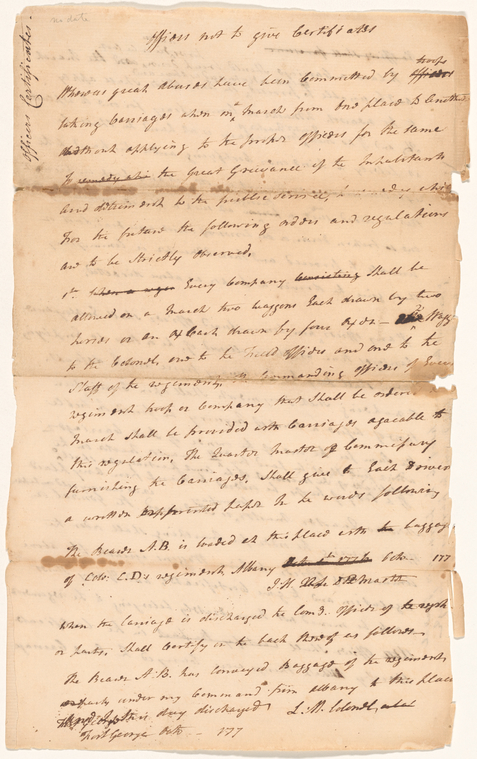 no date
Officers Certificates
Officers not to give Certificates
Whereas great abuses have been Committed by troops officers
taking Carriages when on a March from One place to Another
without applying to the proper officers for the same
To remedy the Great Grievance of the Inhabitants
and Detriment to the publick Service,
For the future the following orders and regulations
are to be Strictly Observed,
1st when a Every Company Consisting Shall be
allowed on a March two waggons Each drawn by two
horses or an Ox Cart drawn by four Oxen — one Waggn
to the Colonel, one to the Field officers and one to the
Staff of the regiment, Commanding officers of Every
regiment troop or Company that Shall be ordered
March Shall be provided with Carriages agreeable to
this regulation, The Quarter Master or Commissary
furnishing the Carriages, Shall give to Each Driver
a written paper In the words following
The Bearer A.B. is loaded at this place with the baggage
of Colo. C.D's regiment Albany Octr. 177
J.H. Master
When the Carriage is discharged the Comd. officer of the regt
or party, Shall Certify on the back thereof as follows
The Bearer A.B. has Conveyed Baggage of the regiment
or party under my Command from Albany to this place
and is duly discharged L.M. Colonel,
Fort George Octr. — 177